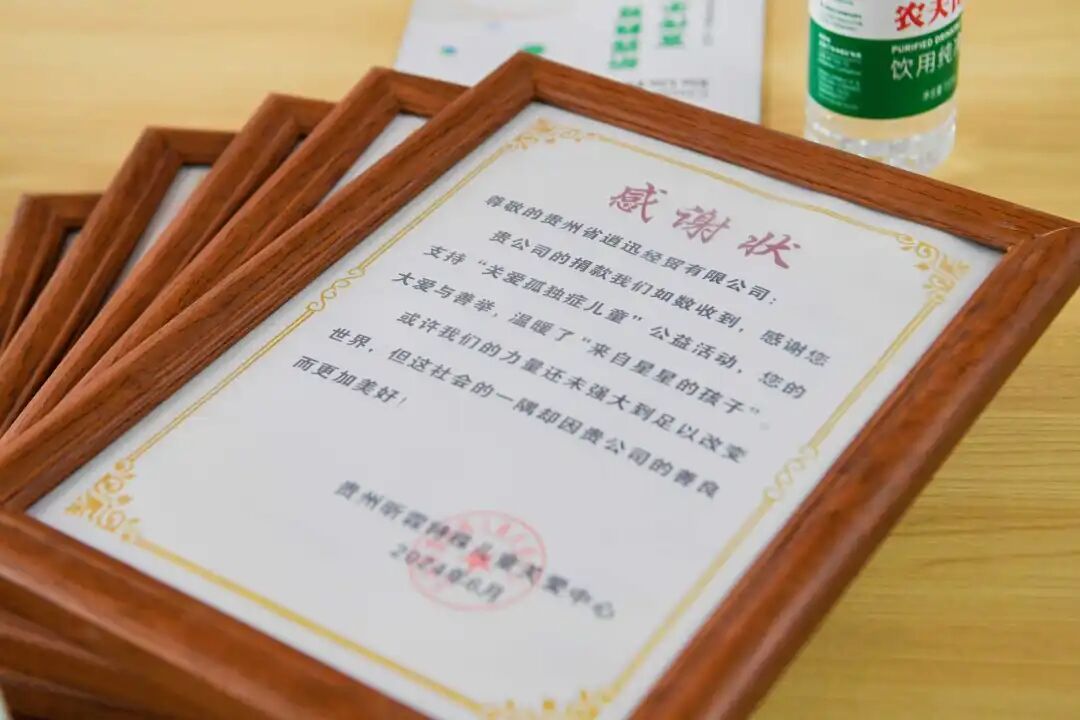 农夫
PURIFIED DRINKING
饮用纯
感谢状
尊敬的贵州省逍迅经贸有限公司：
贵公司的捐款我们如数收到，感谢您
支持“关爱孤独症儿童”公益活动，您的
大爱与善举，温暖了“来自星星的孩子”。
或许我们的力量还未强大到足以改变
世界，但这社会的一隅却因贵公司的善良
而更加美好！
贵州昕霖特殊儿童关爱中心
2024年6月